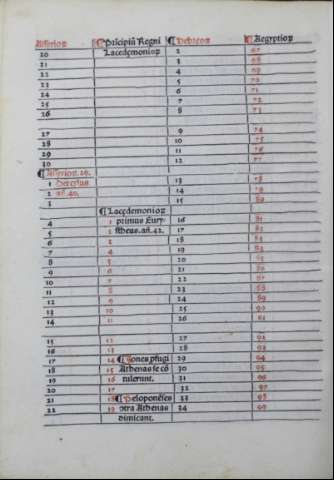 Assirioꝝ ¶Pricipiū Regni ¶Hebreoꝝ ¶Aegyptioꝝ
20 Lacedęmonioꝝ 2 67
21 3 68
22 4 69
23 5 70
24 6 71
25 7 72
26 8 73
27 9 74
28 10 75
29 11 76
30 12 77
¶Assirioꝝ. 29.
1 13 78
2 añ. 40. 14 79
3 15 80
¶Lacedęmonioꝝ
4 1 primus Eury⸗ 16 81
5 2 stheus. añ. 42. 17 82
6 3 18 83
7 4 19 84
8 5 20 85
9 6 21 86
10 7 22 87
11 8 23 88
12 9 24 89
13 10 25 90
14 11 26 91
15 12 27 92
16 13 28 93
17 14 ¶Iones ꝓfugi 29 94
18 15 Athenas se cō 30 95
19 16 tulerunt. 31 96
20 17 32 97
21 18 ¶Peloponēses 33 98
22 19 ɔtra Athenas 34 99
dimicant.